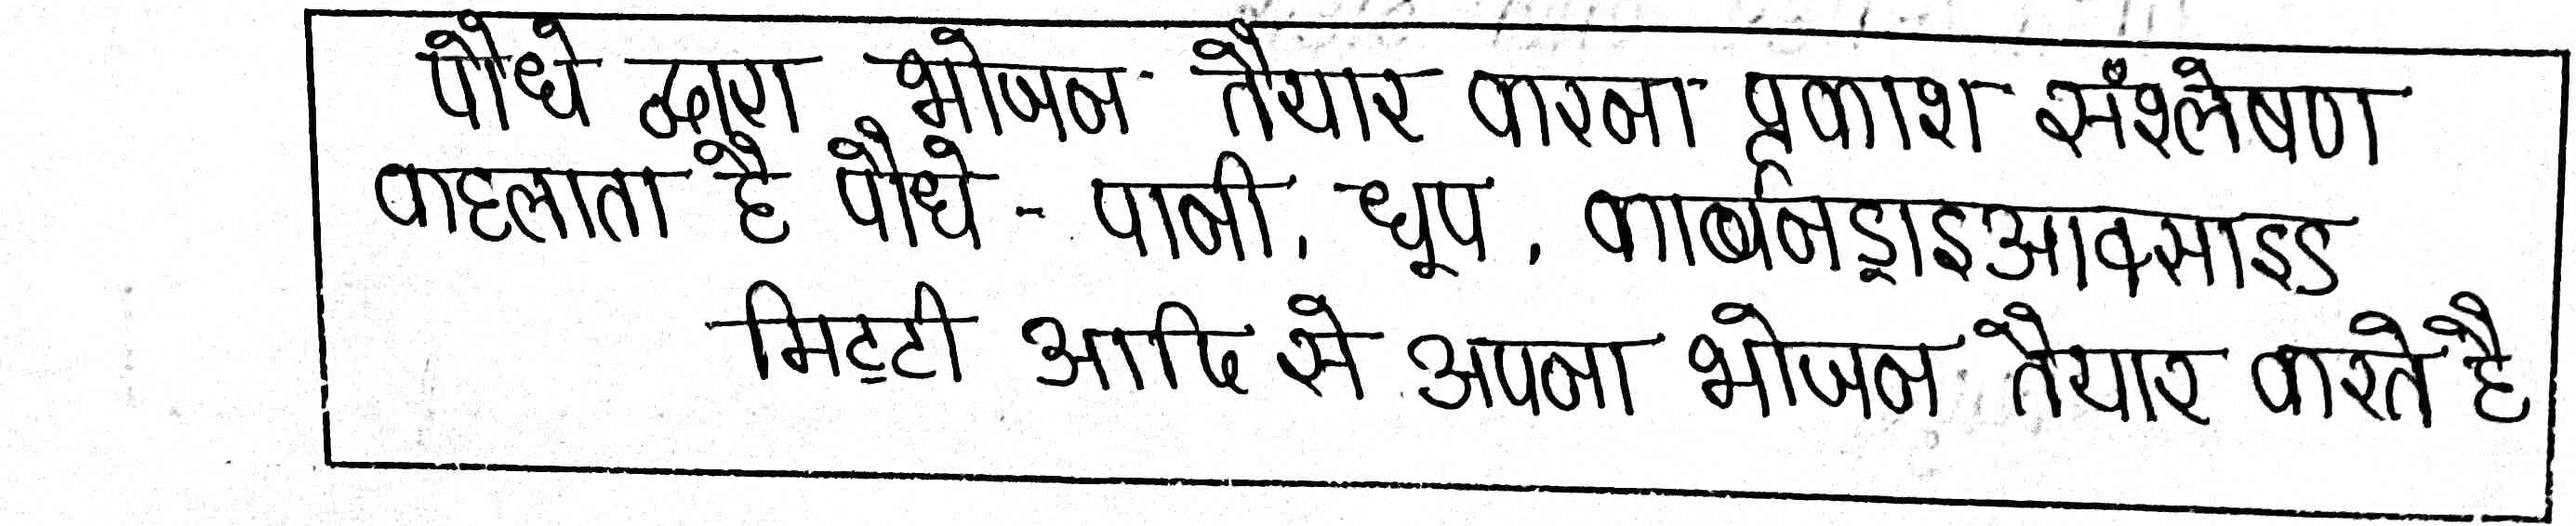 पौधे द्वारा भोजन तैयार करना प्रकाश सँश्लेषण
कहलाता है पौधे - पानी, धूप, कार्बनडाइआक्साइड
मिट्टी आदि से अपना भोजन तैयार करते है